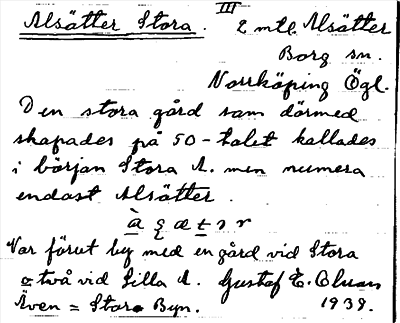 III
Alsätter Stora. 2 mtl. Alsätter
Borg sn.
Norrköping Ögl.
Den stora gård som därmed
skapades på 50-talet kallades
i början Stora A. men numera
endast Alsätter.
Var förut by med en gård vid Stora
o två vid Lilla A. Gustaf E. Olsson
Även = Stora Byn. 1939.